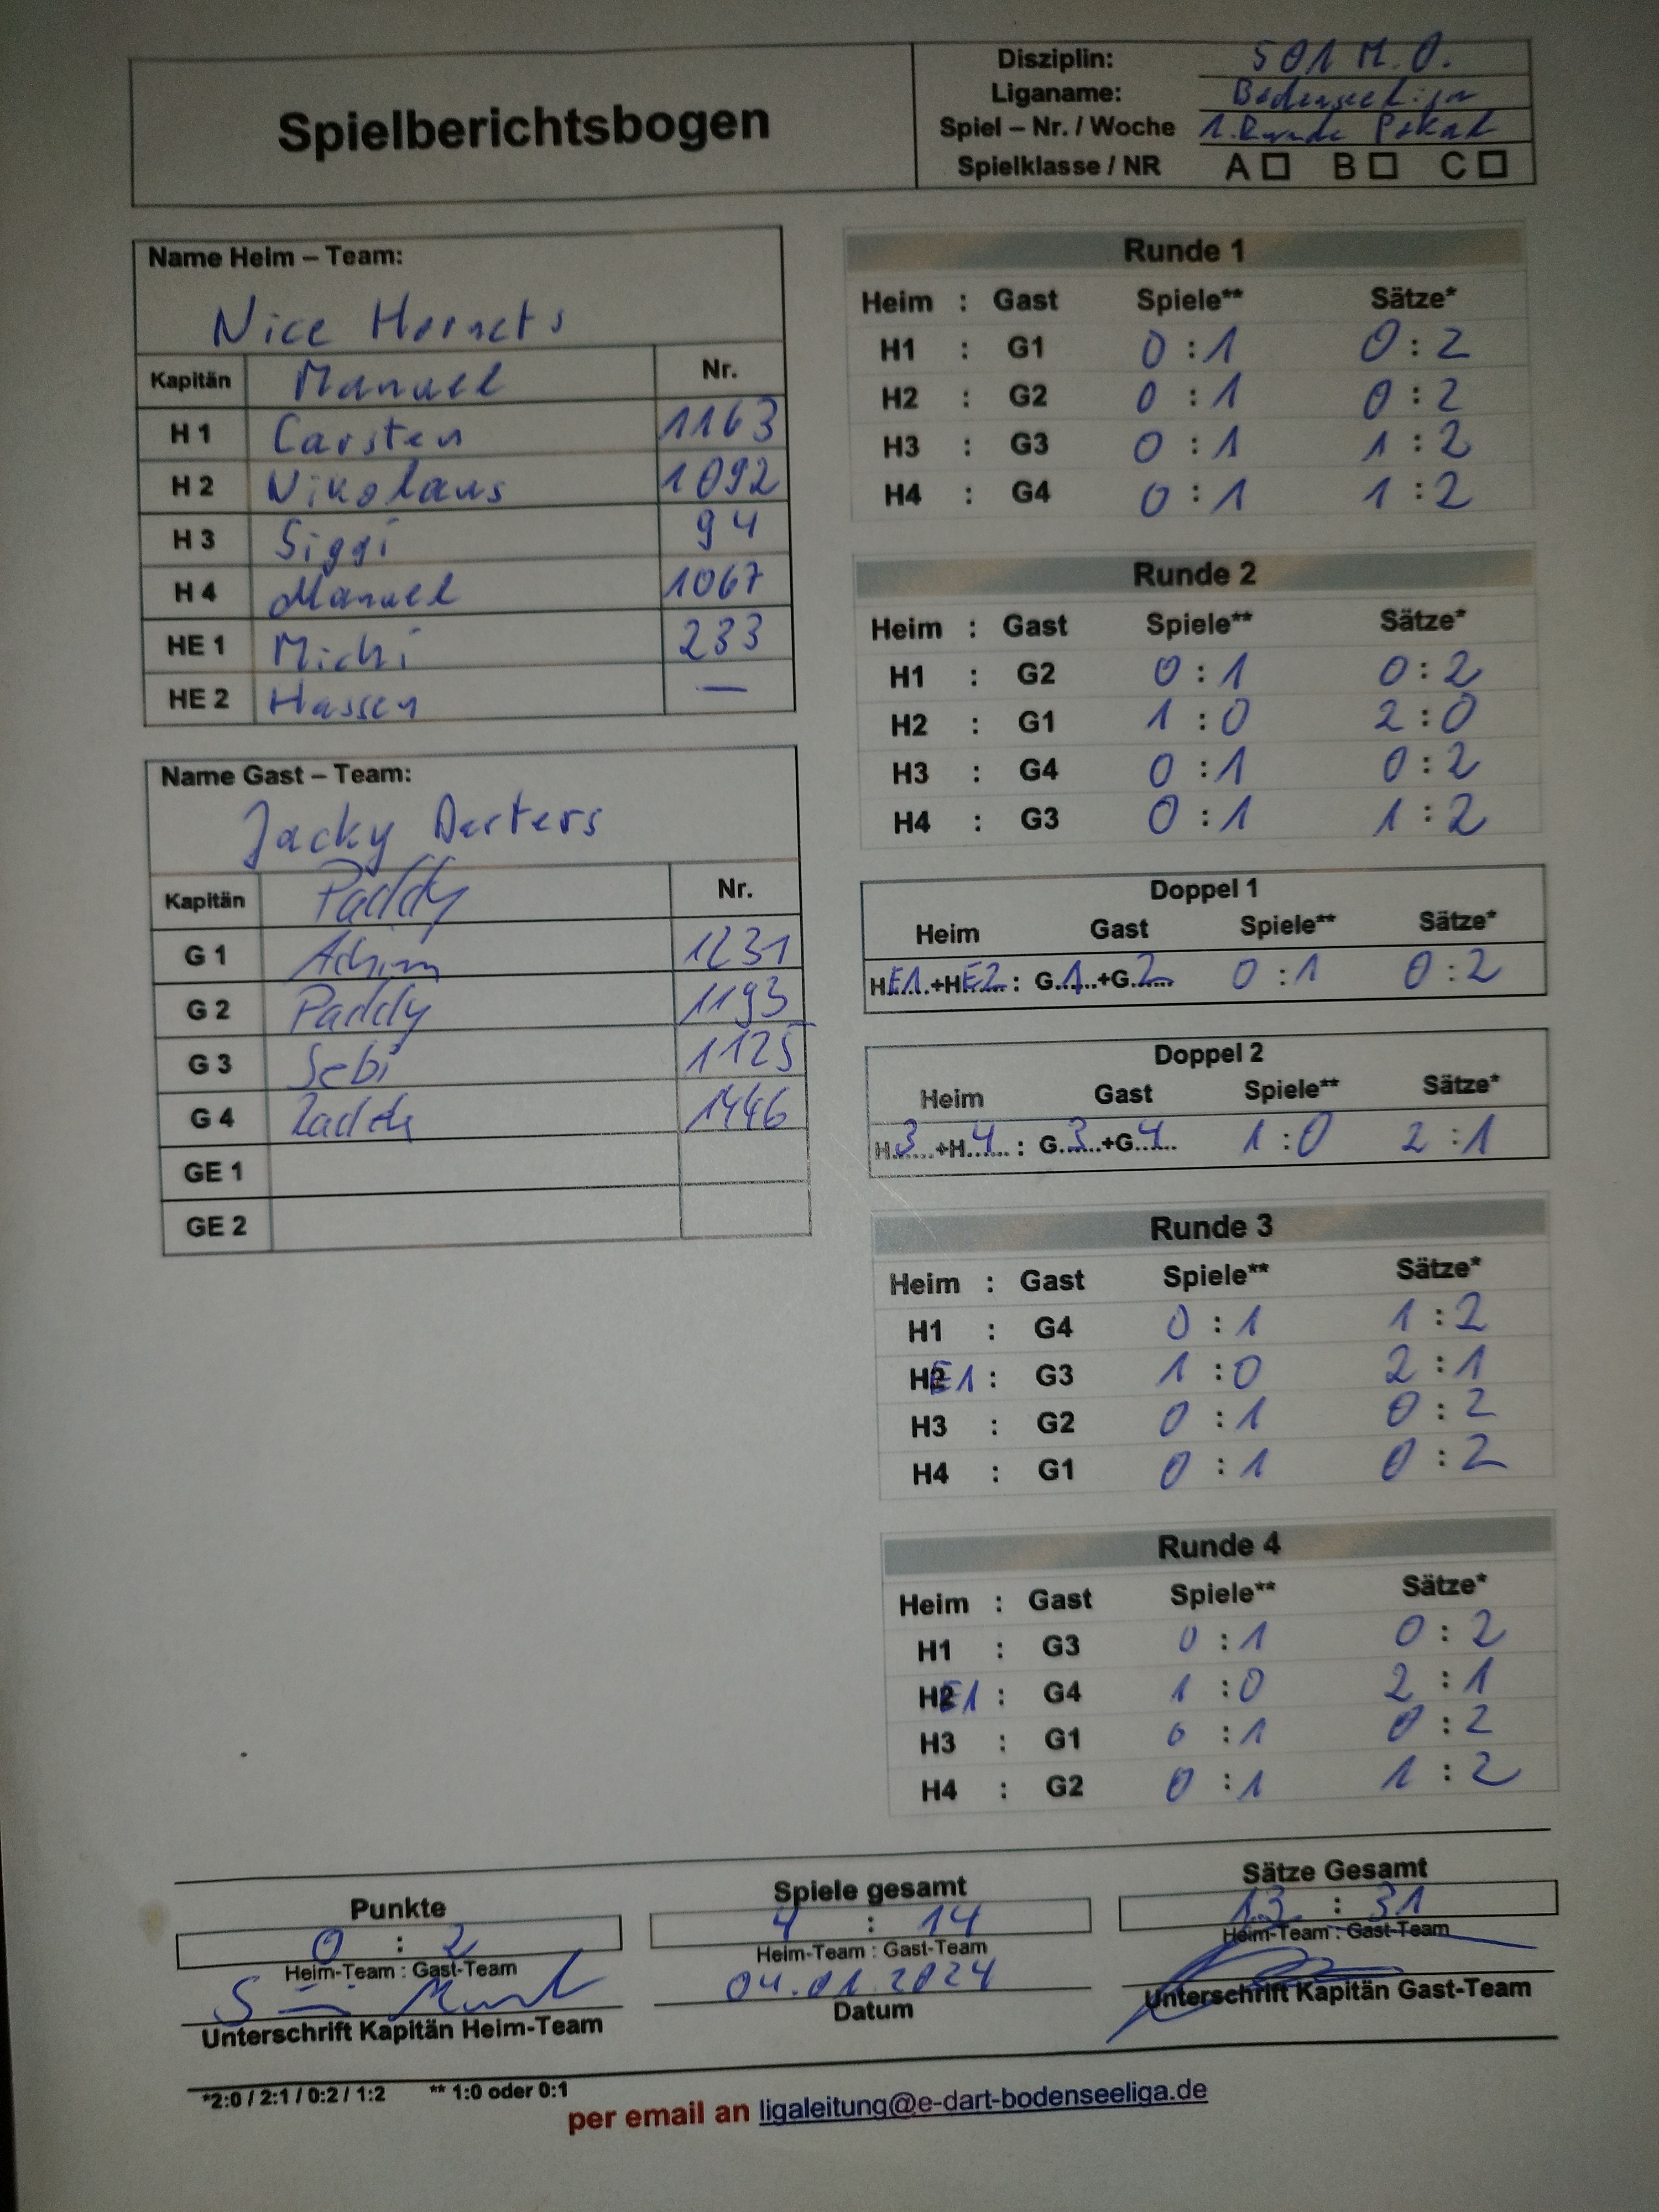 Spielberichtsbogen
Disziplin: 501 M.O.
Liganame: Bodenseeliga
Spiel – Nr. / Woche 1. Runde Pokal
Spielklasse / NR A ☐ B ☐ C ☐
Name Heim – Team:
Nice Hornets
Kapitän Manuel Nr.
H 1 Carsten 1163
H 2 Nikolaus 1092
H 3 Siggi 94
H 4 Manuel 1067
HE 1 Michi 233
HE 2 Hassen —
Name Gast – Team:
Jacky Darters
Kapitän Paddy Nr.
G 1 Achim 1231
G 2 Paddy 1193
G 3 Sebi 1125
G 4 1446
GE 1
GE 2
Runde 1
Heim : Gast Spiele** Sätze*
H1 : G1 0 : 1 0 : 2
H2 : G2 0 : 1 0 : 2
H3 : G3 0 : 1 1 : 2
H4 : G4 0 : 1 1 : 2
Runde 2
Heim : Gast Spiele** Sätze*
H1 : G2 0 : 1 0 : 2
H2 : G1 1 : 0 2 : 0
H3 : G4 0 : 1 0 : 2
H4 : G3 0 : 1 1 : 2
Doppel 1
Heim Gast Spiele** Sätze*
HE1+HE2 : G1+G2 0 : 1 0 : 2
Doppel 2
Heim Gast Spiele** Sätze*
H3+H4 : G3+G4 1 : 0 2 : 1
Runde 3
Heim : Gast Spiele** Sätze*
H1 : G4 0 : 1 1 : 2
HE1 : G3 1 : 0 2 : 1
H3 : G2 0 : 1 0 : 2
H4 : G1 0 : 1 0 : 2
Runde 4
Heim : Gast Spiele** Sätze*
H1 : G3 0 : 1 0 : 2
HE1 : G4 1 : 0 2 : 1
H3 : G1 0 : 1 0 : 2
H4 : G2 0 : 1 1 : 2
Punkte Spiele gesamt Sätze Gesamt
0 : 2 4 : 14 13 : 31
Heim-Team : Gast-Team Heim-Team : Gast-Team Heim-Team : Gast-Team
04.01.2024
Unterschrift Kapitän Heim-Team Datum Unterschrift Kapitän Gast-Team
*2:0 / 2:1 / 0:2 / 1:2 ** 1:0 oder 0:1
per email an ligaleitung@e-dart-bodenseeliga.de